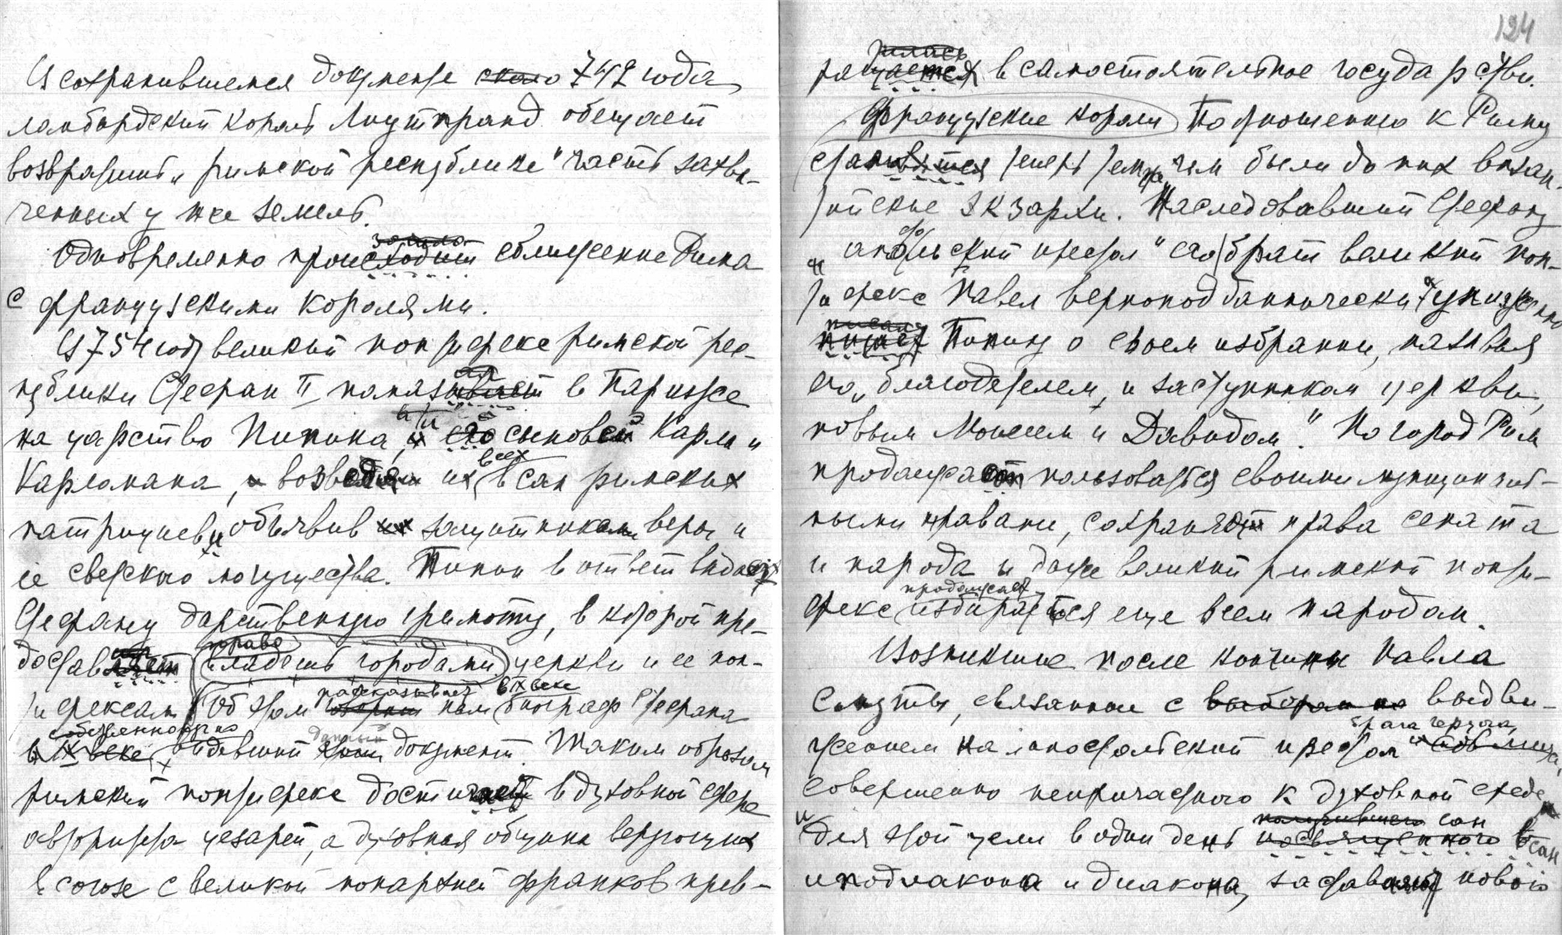 В сохранившемся документе около 742 года
лангобардский король Лиутпранд обещает
возвратить „римской республике" часть захва-
ченных у нее земель.
Одновременно произошло сближение Рима
с французскими королями.
В 754 году великий понтифекс римской рес-
публики Стефан II помазал в Париже
на царство Пипина, и его сыновей Карла и
Карломана, возведя их всех в сан римских
патрициев и объявив защитниками веры и
ее светского могущества. Пипин в ответ выдает
Стефану дарственную грамоту, в которой пре-
право
доставляет владеть городами церкви и ее пон-
рассказывает в IX веке
тифексам. Об этом нам биограф Стефана
собственноручно данный
в IX веке, видевший документ. Таким образом
римский понтифекс достигает в духовной сфере
авторитета цезарей, а духовная община верующих
в союзе с великой монархией франков прев-
124
ращается в самостоятельное государство.
Французские короли по отношению к Риму
становятся теперь тем же, чем были до них визан-
тийские экзархи. Наследовавший Стефану
„апостольский престол" его брат великий пон-
тифекс Павел верноподданнически
писал Пипину о своем избрании, называя
его „благодетелем, и заступником церкви,
новым Моисеем и Давидом". Но город Рим
продолжает пользоваться своими муниципаль-
ными правами, сохраняет права сената
и народа и даже великий римский понти-
продолжает
фекс избираться еще всем народом.
Возникшие после кончины Павла
смуты, связанные с выборами на выдви-
жением на апостольский престол
брата герцога,
совершенно непричастного к духовной среде
и для этой цели в один день сан
иподиакона и диакона, заставляют нового